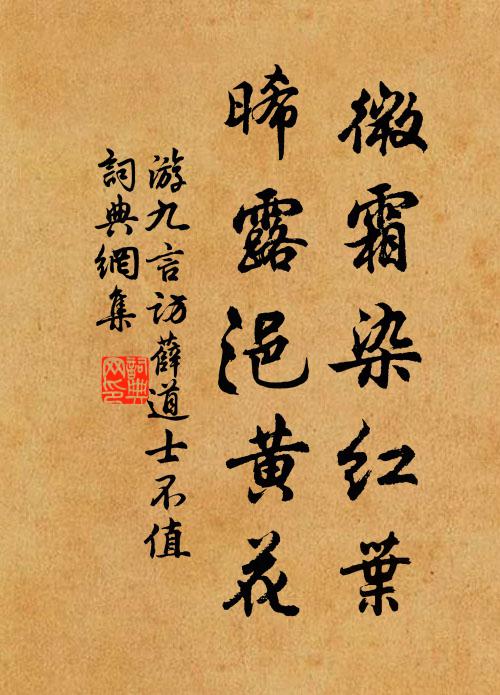 微霜染红葉
晞露浥黄花
游九言访薛道士不值
詞典網集
詞典網印